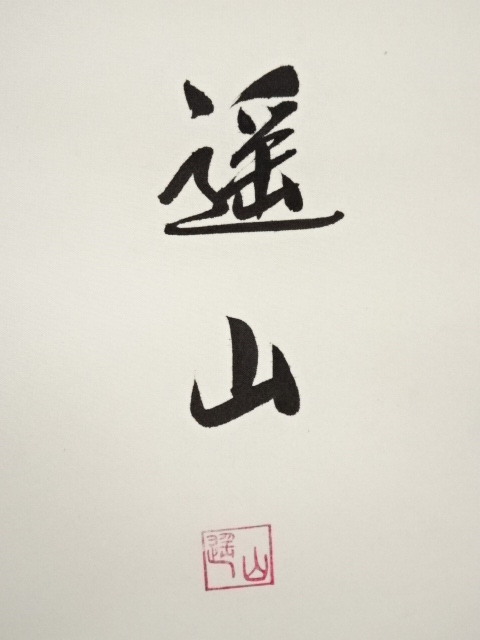 遥
山
遥山